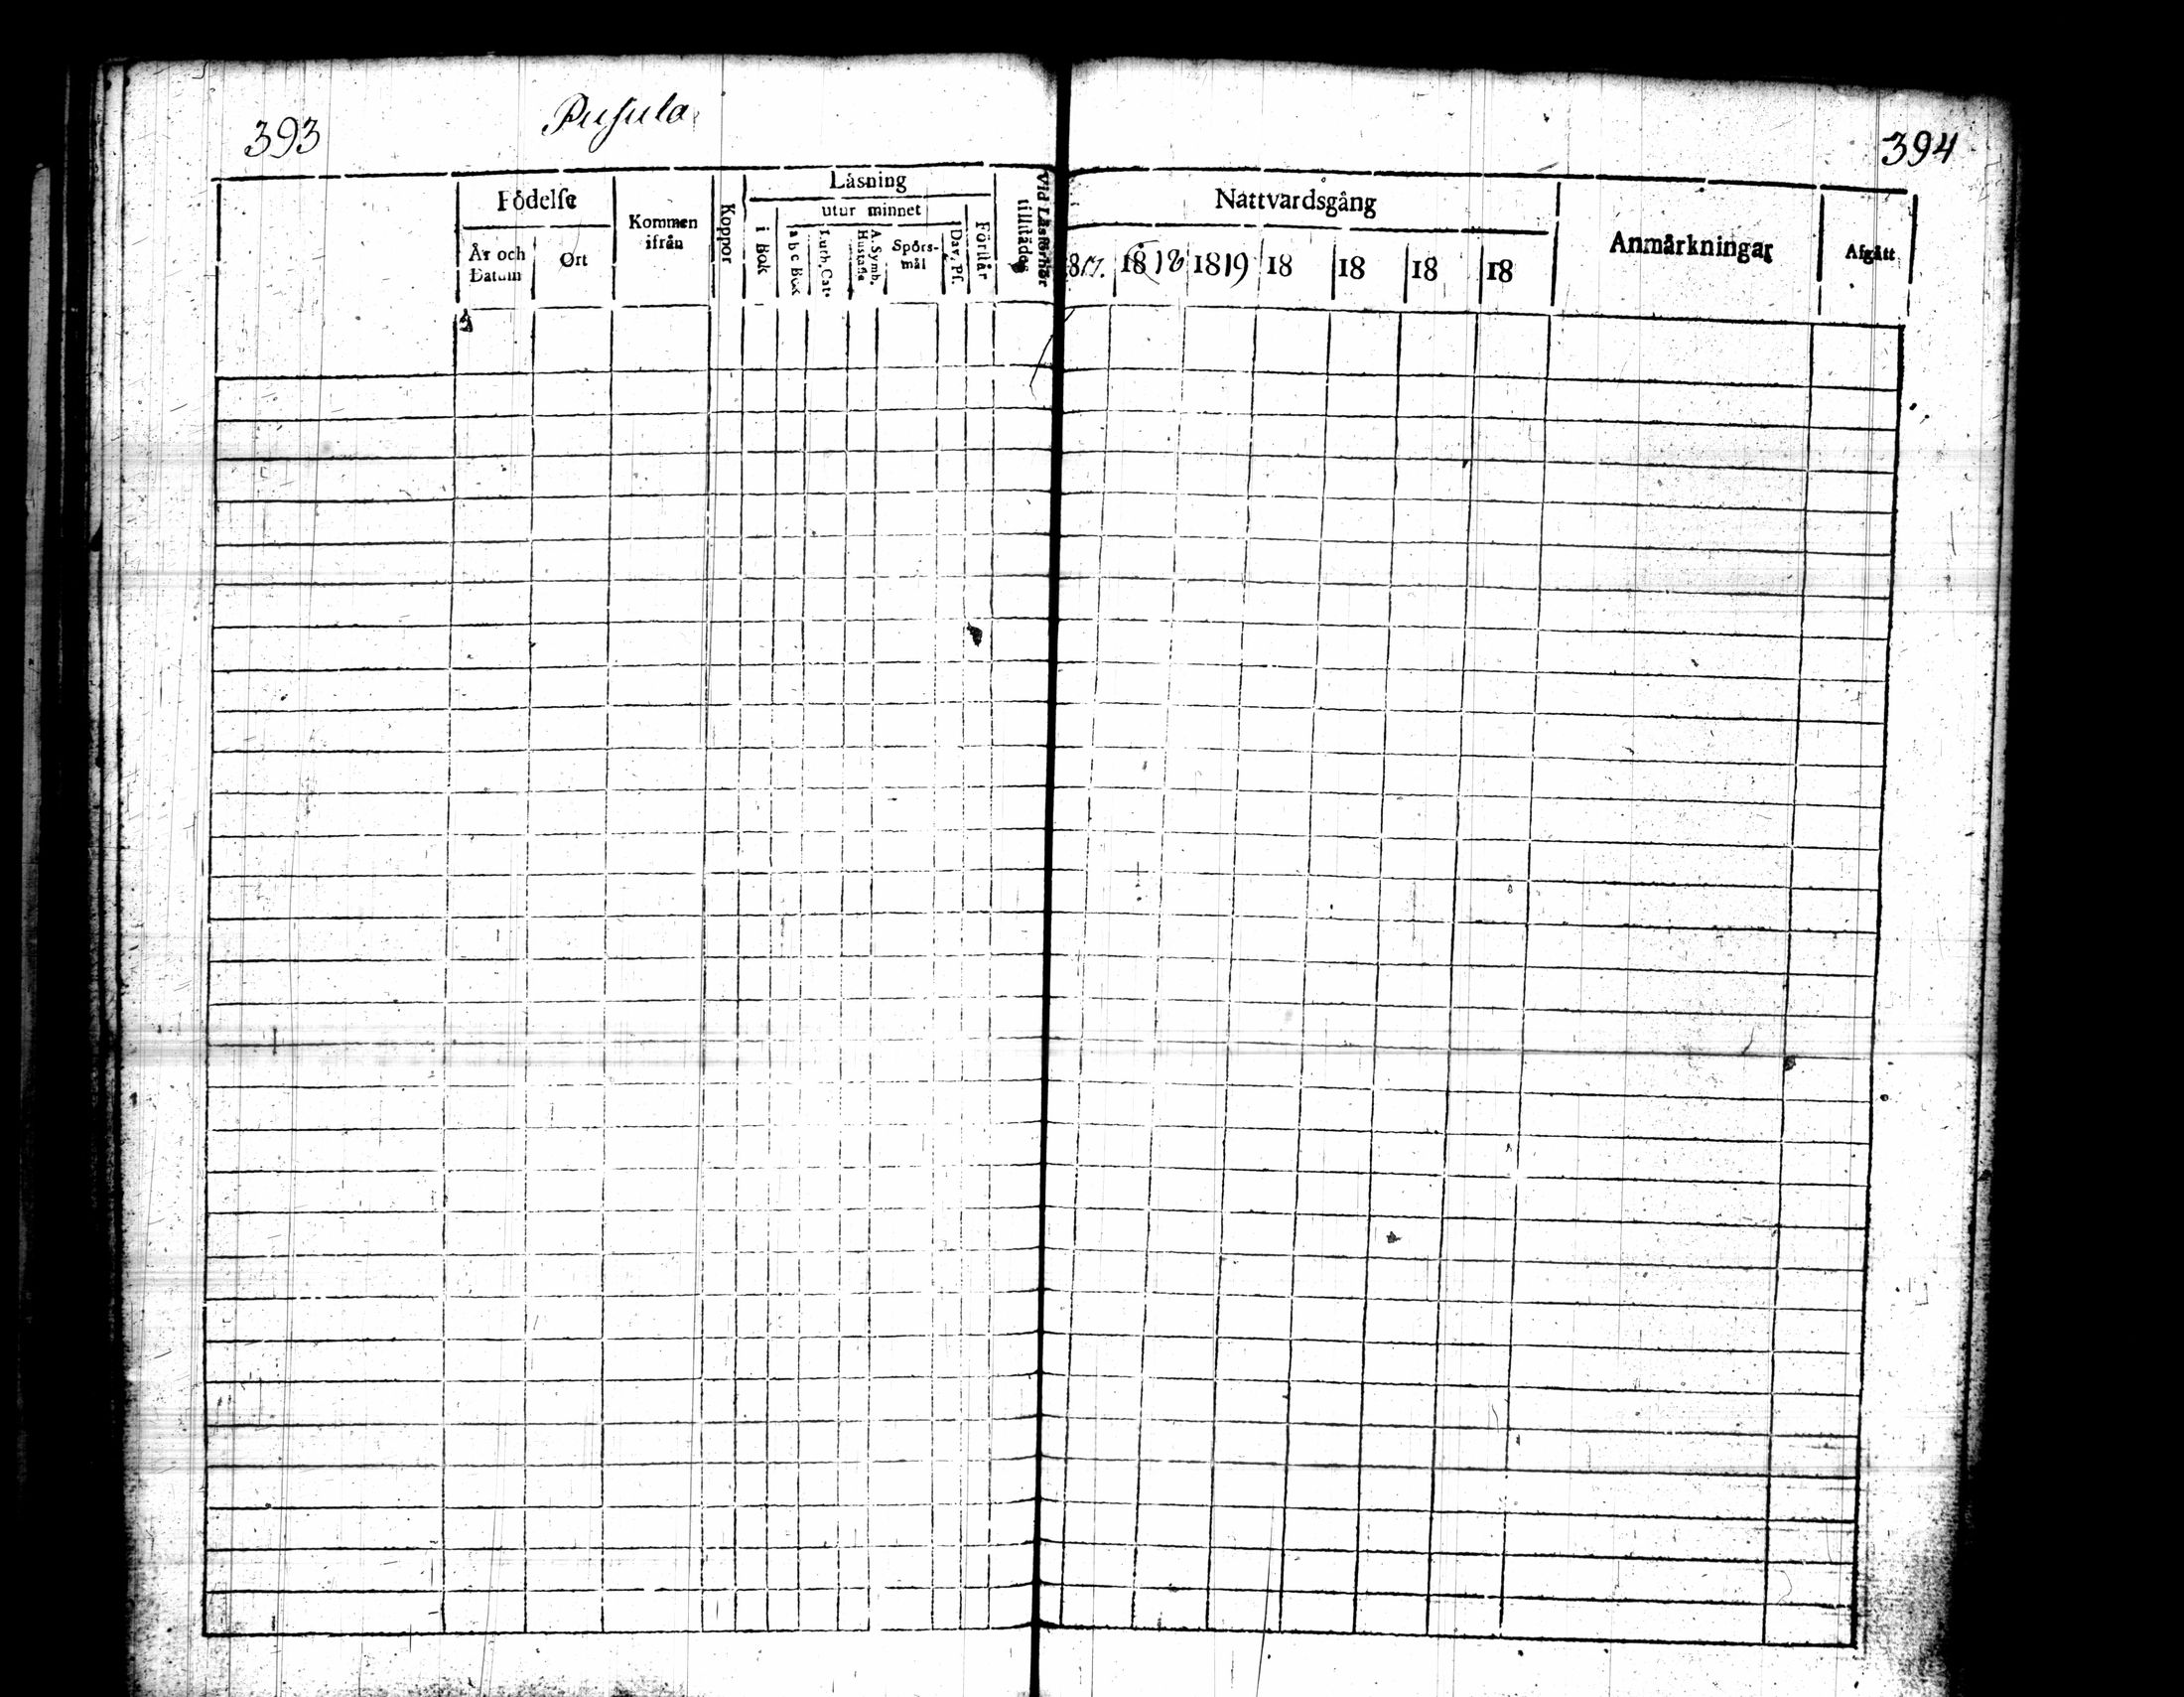 393
Pusula
394
Födelse
År och Datum
Ort
Kommen ifrån
Koppor
Låsning
i Bok
utur minnet
a b c Bok
Luth. Cat.
A. Symb. Hustafla
Spörs-mål
Dav. Ps.
Förstår
Vid Läsförhör tillstädes
Nattvardsgång
1817.
1818
1819
18
18
18
18
Anmärkningar
Afgått